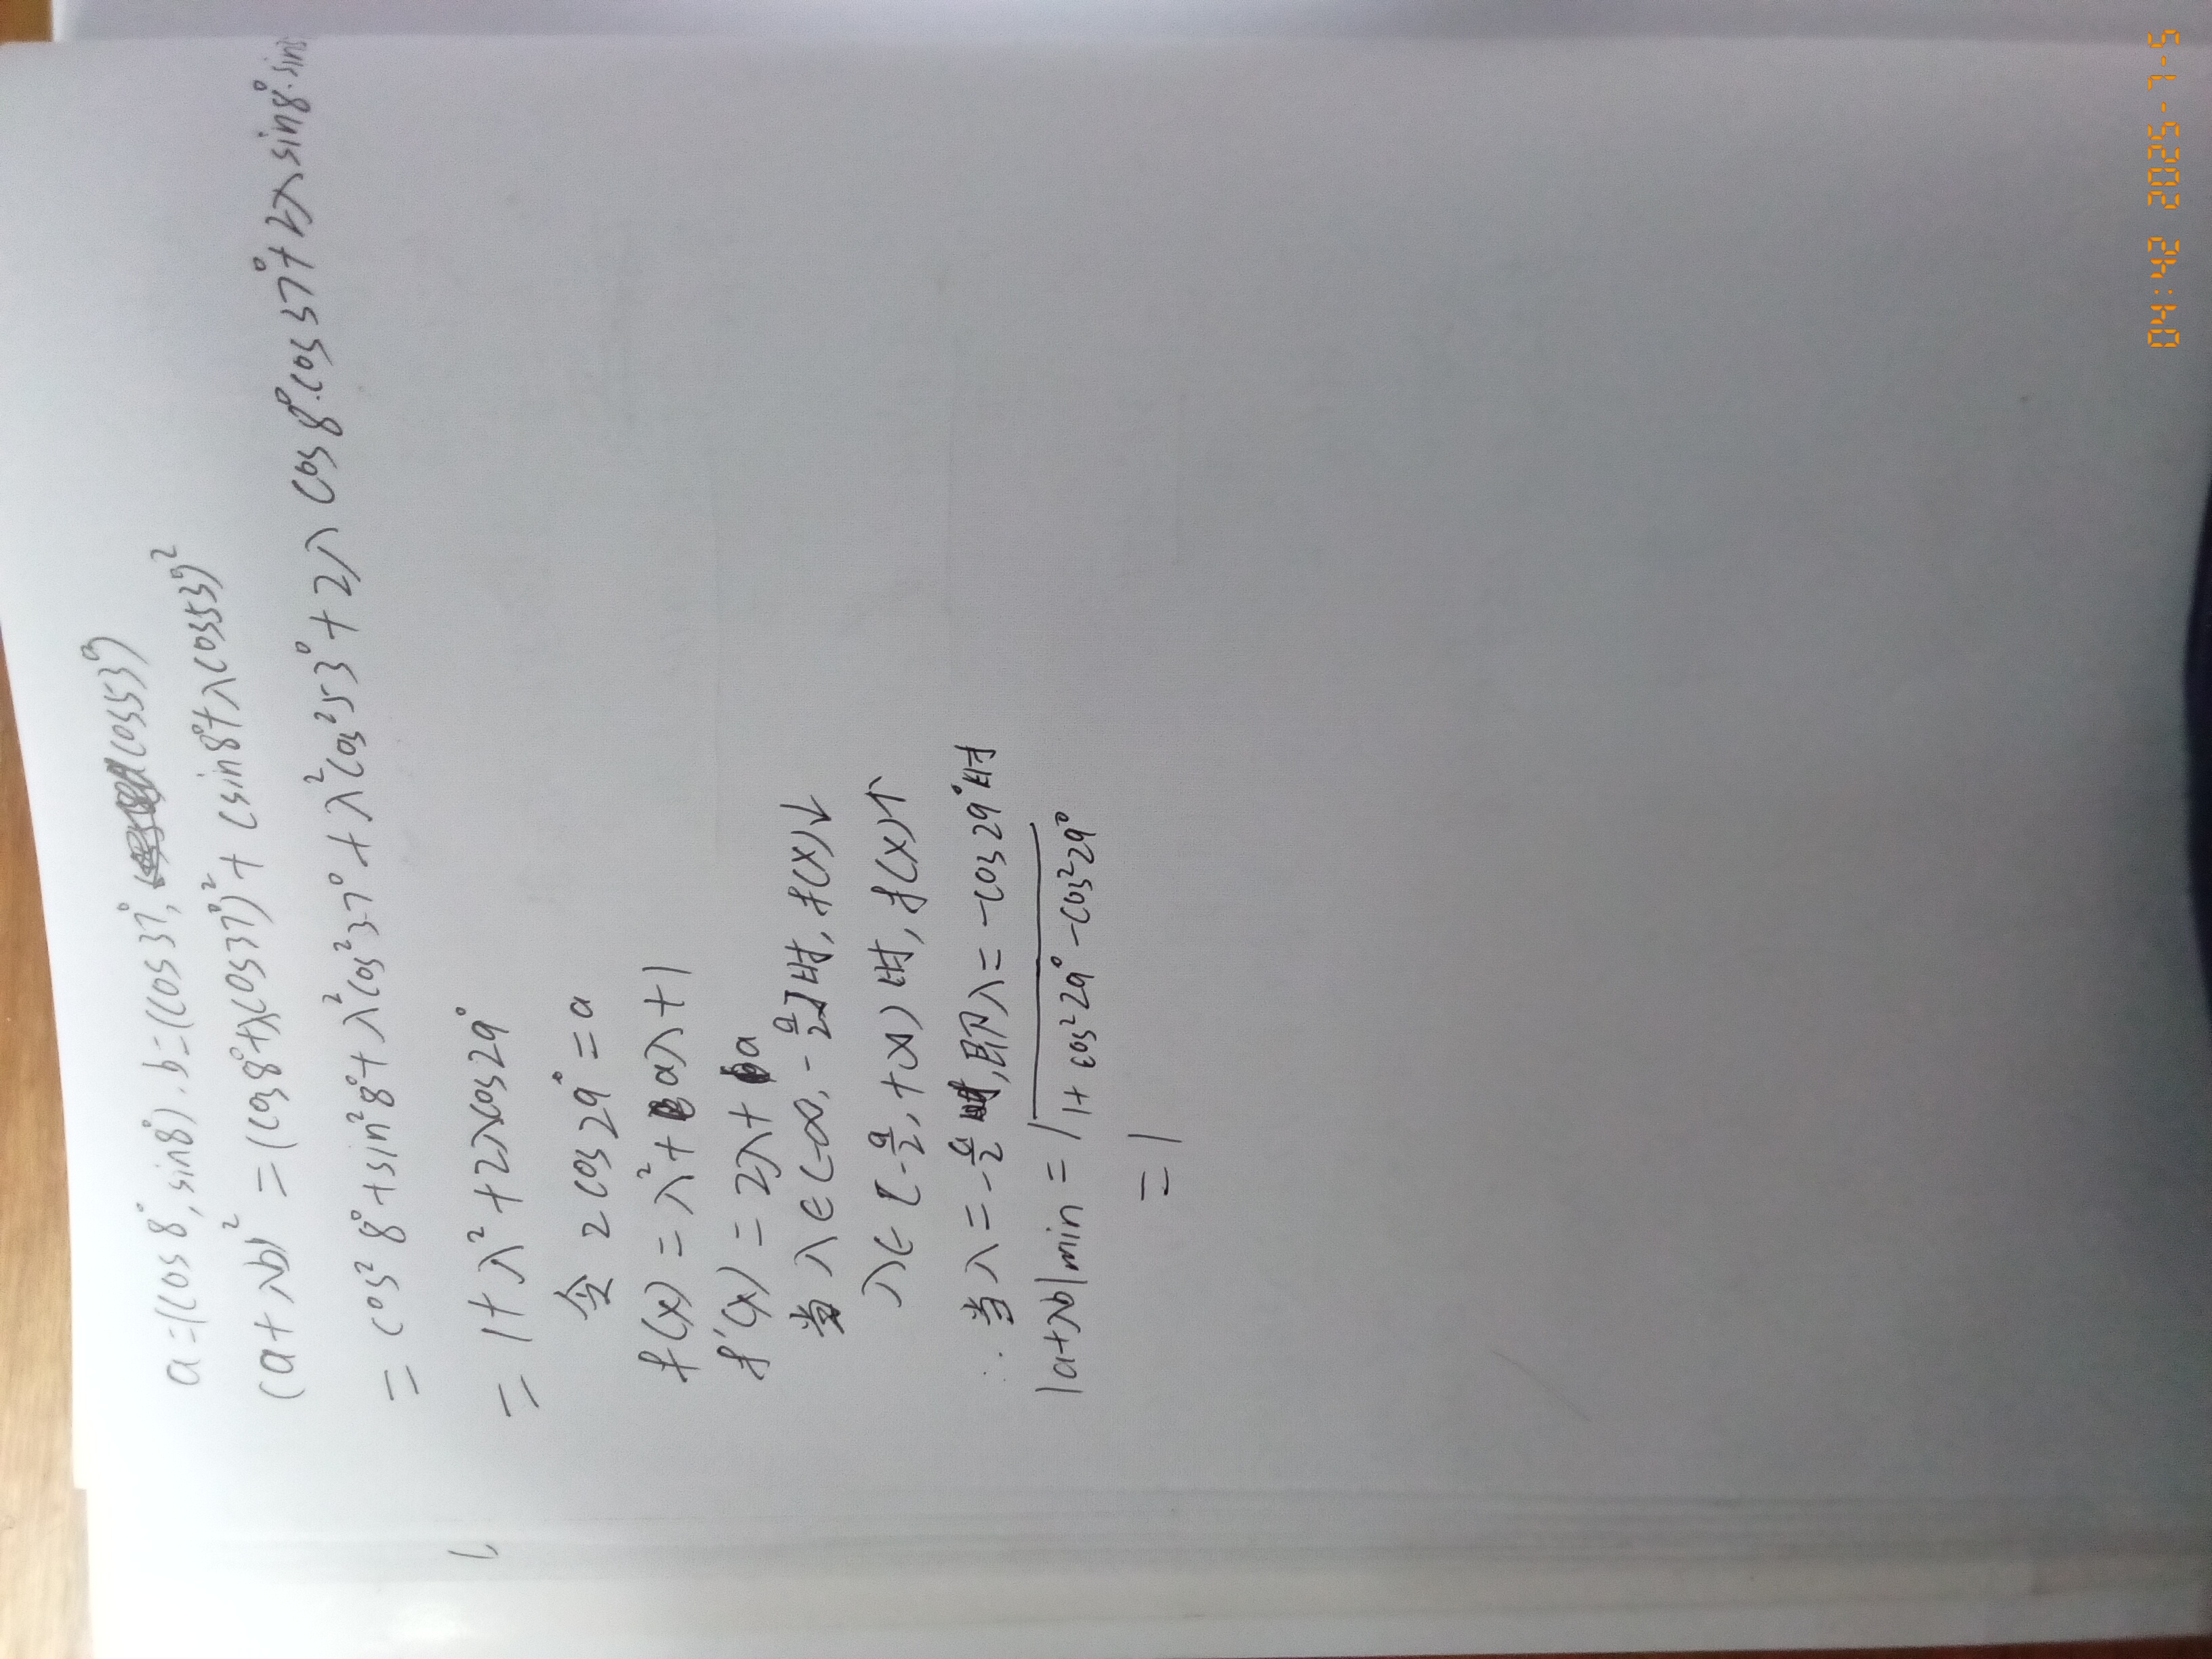 a=(cos8°,sin8°).b=(cos37°, cos53°)
(a+λb)²=(cos8°+λcos37°)²+(sin8°+λcos53°)²
=cos²8°+sin²8°+λ²cos²37°+λ²cos²53°+2λcos8°·cos37°+2λsin8°·sin
=1+λ²+2λcos29°
令2cos29°=a
f(x)=λ²+aλ+1
f'(x)=2λ+a
当λ∈(-∞,-a/2]时,f(x)↓
λ∈[-a/2,+∞)时,f(x)↑
∴当λ=-a/2时,即λ=-cos29°时
|a+λb|min=√1+cos²29°-cos²29°
=1
1,
04:42 2025-7-5